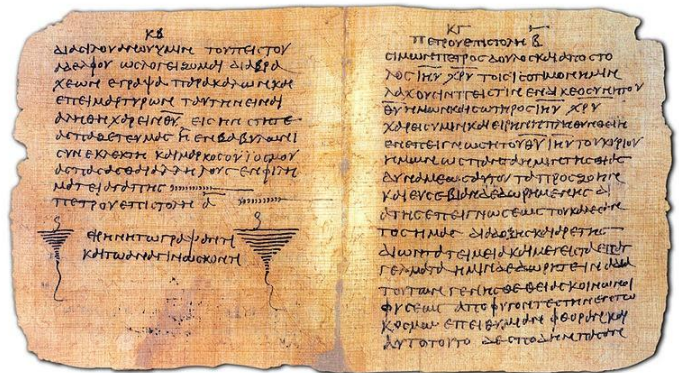 ΚΒ
διασιλουανουυμιν τουπειστου
αδελφου ωσλογειζομαι διαβρα
χεων εγραψα παρακαλωνκαι
επειμαρτυρων ταυτηνειναι
αληθη χαρεινθυ εις ην στητε
ασπαζετεϋμας η ενβαβυλωνι
συνεκλεκτη και μαρκοσουϊοσμου
ασπασασθαιαλληλους ενφιλη
ματειαγαπης
πετρουεπιστολη α
ειρηνητωγραψαντι
καιτωαναγινωσκοντι
ΚΓ
πετρουεπιστολη β
σιμωνπετρος δουλοςκαιαποστο
λος ιηυ χρυ τοις ισοτιμονημιν
λαχουσινπιστιν ενδικεοσυνητου
θυ ημωνκαισωτηρος ιηυ χρυ
χαρεισυμινκαιειρηνηπληθυνθειη
ενεπειγνωσητουθυ ιηυτουκυριου
ημων ωσπανταημιντησθειας
δυναμεωσαυτου ταπροσζωην
καιευσεβιαν δεδωρημενης δι
ατης επειγνωσεως τουκαλεσαν
τοςημας διαδοξηςκαιαρετης
διωντατειμειακαιμεγεισταεπαγ
γελματα ημινδεδωρητε ιναδια
τουτων γενησθε θειας κοινωνοι
φυσεως αποφυγοντεςτηνεντω
κοσμω επειθυμιαν φθοραν και
αυτοτουτο δε σπουδηνπασαν